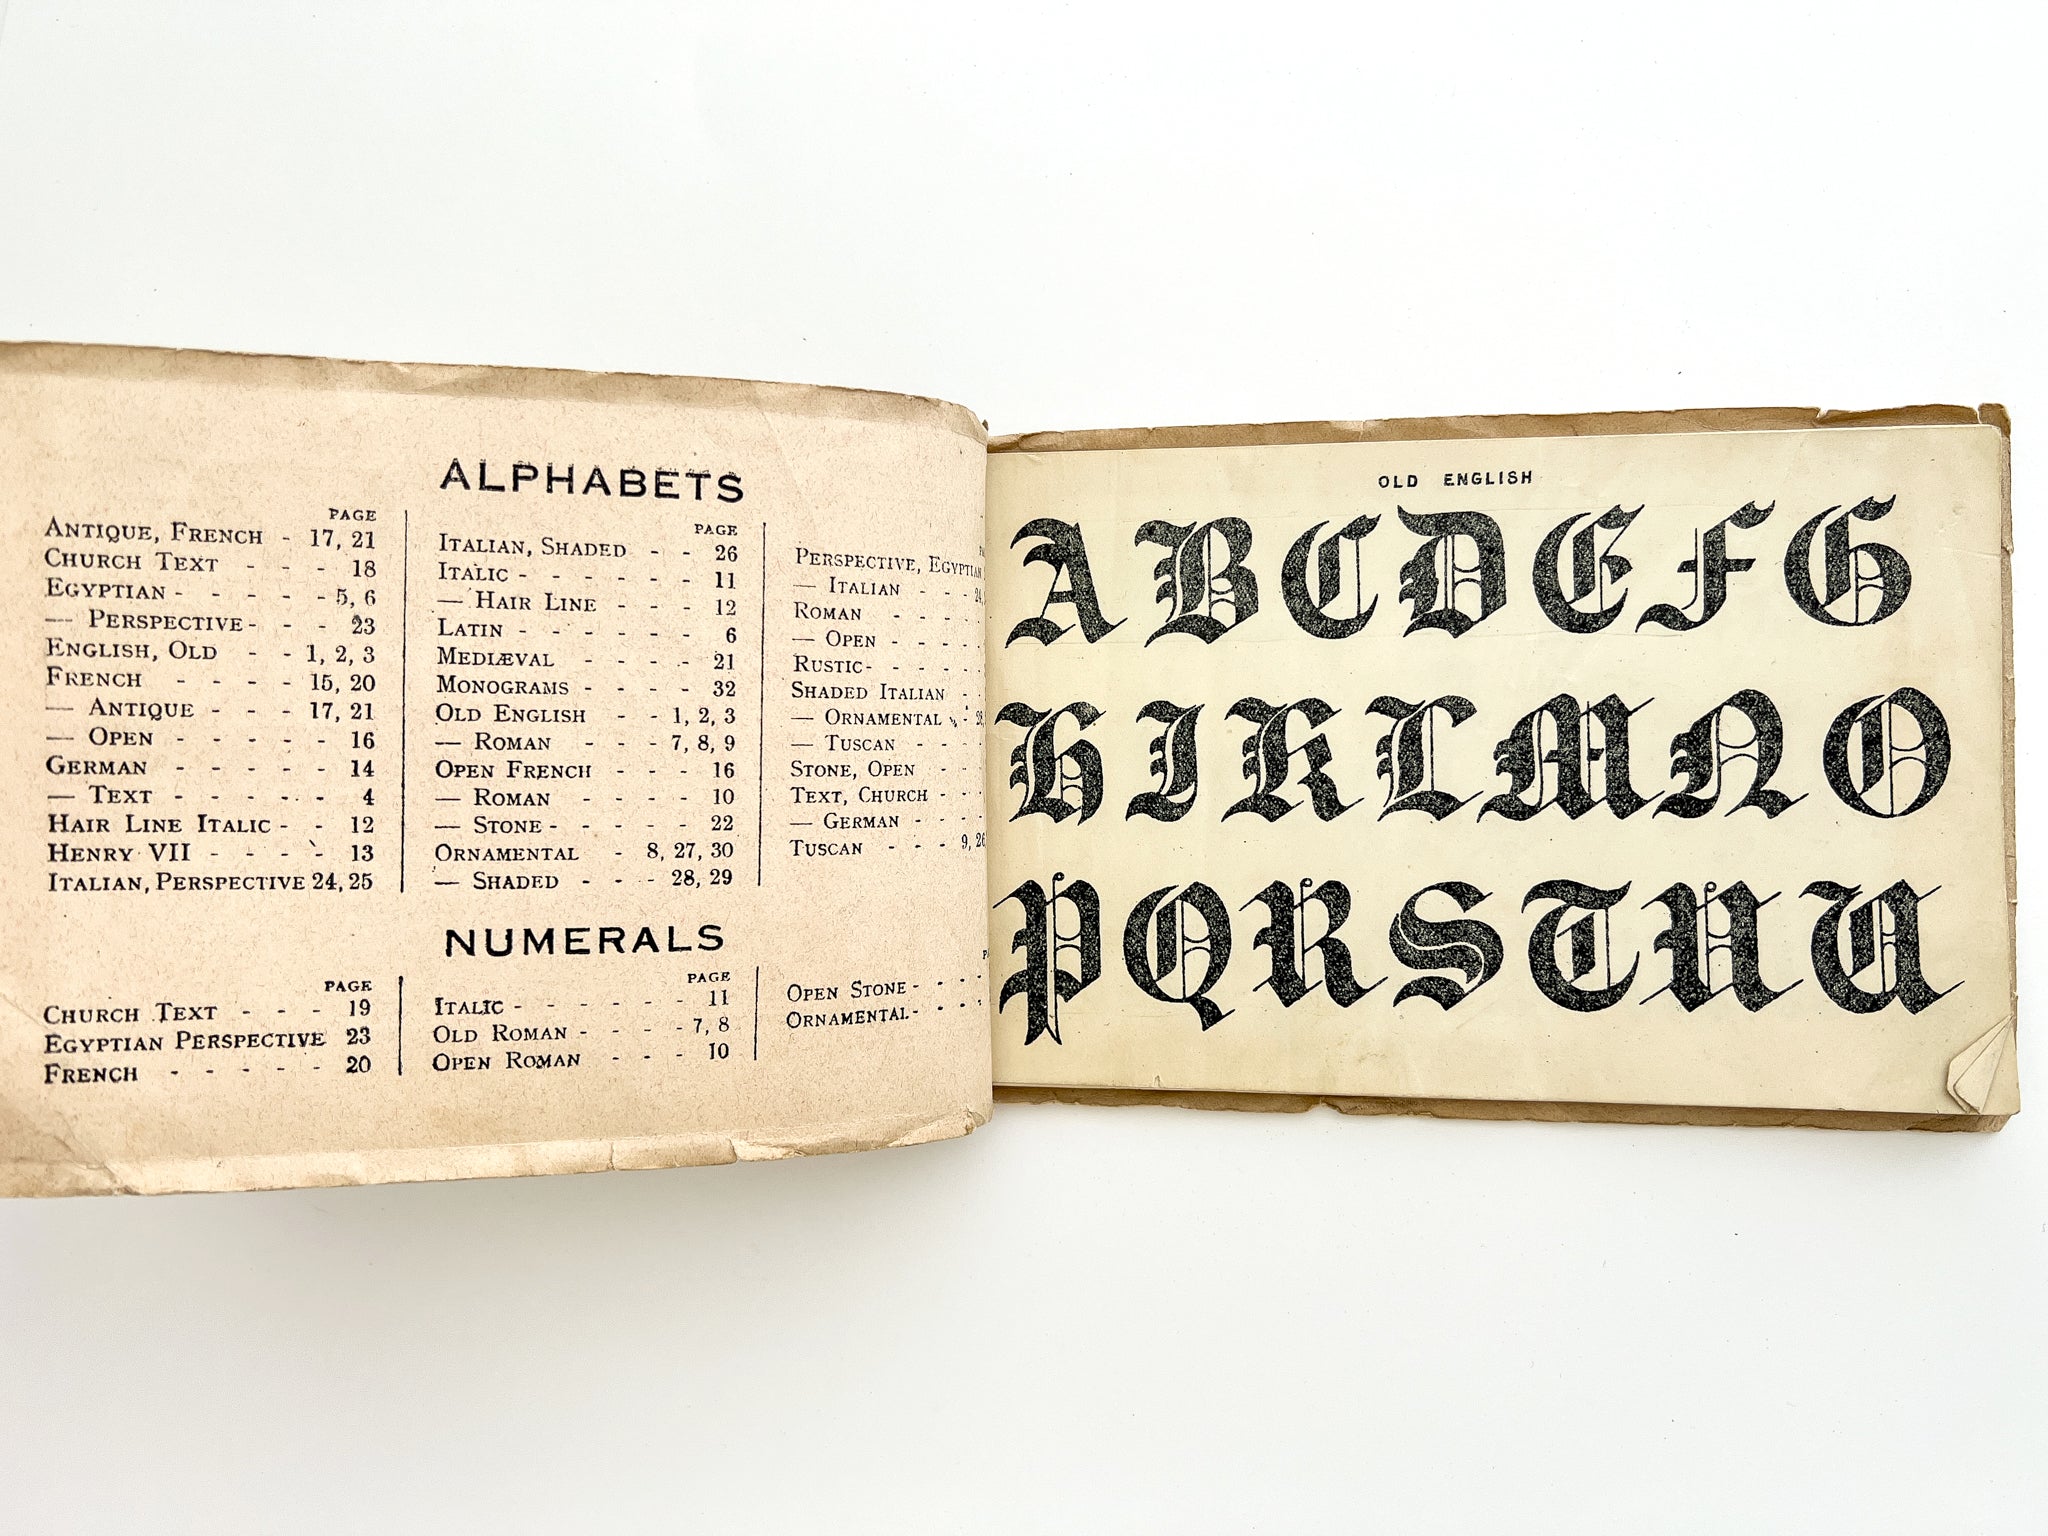 ALPHABETS
PAGE
ANTIQUE, FRENCH - 17, 21
CHURCH TEXT - - - 18
EGYPTIAN - - - - - 5, 6
— PERSPECTIVE - - - 23
ENGLISH, OLD - - 1, 2, 3
FRENCH - - - - 15, 20
— ANTIQUE - - - 17, 21
— OPEN - - - - - 16
GERMAN - - - - - 14
— TEXT - - - - - 4
HAIR LINE ITALIC - - 12
HENRY VII - - - - 13
ITALIAN, PERSPECTIVE 24, 25
PAGE
ITALIAN, SHADED - - 26
ITALIC - - - - - - 11
— HAIR LINE - - - 12
LATIN - - - - - - 6
MEDIÆVAL - - - - 21
MONOGRAMS - - - - 32
OLD ENGLISH - - 1, 2, 3
— ROMAN - - - 7, 8, 9
OPEN FRENCH - - - 16
— ROMAN - - - - 10
— STONE - - - - - 22
ORNAMENTAL - 8, 27, 30
— SHADED - - - 28, 29
PERSPECTIVE, EGYPTIAN
— ITALIAN - - -
ROMAN - - - -
— OPEN - - - -
RUSTIC - - - - -
SHADED ITALIAN - -
— ORNAMENTAL - -
— TUSCAN - - - -
STONE, OPEN - - -
TEXT, CHURCH - - -
— GERMAN - - - -
TUSCAN - - - 9,
NUMERALS
PAGE
CHURCH TEXT - - - 19
EGYPTIAN PERSPECTIVE 23
FRENCH - - - - - 20
PAGE
ITALIC - - - - - - 11
OLD ROMAN - - - - 7, 8
OPEN ROMAN - - - 10
OPEN STONE - - - -
ORNAMENTAL - - - -
OLD ENGLISH
A B C D E F G
H I K L M N O
P Q R S T U U